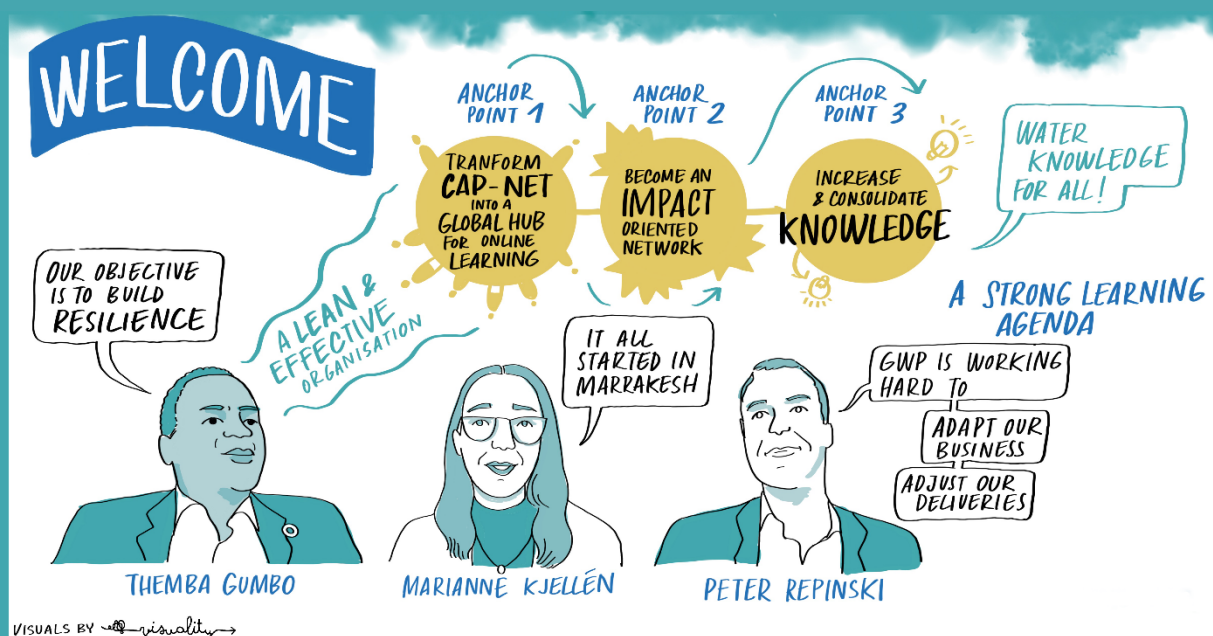 WELCOME
ANCHOR
POINT 1
TRANFORM
CAP-NET
INTO A
GLOBAL HUB
FOR ONLINE
LEARNING
ANCHOR
POINT 2
BECOME AN
IMPACT
ORIENTED
NETWORK
ANCHOR
POINT 3
INCREASE
& CONSOLIDATE
KNOWLEDGE
WATER
KNOWLEDGE
FOR ALL!
OUR OBJECTIVE
IS TO BUILD
RESILIENCE
A LEAN &
EFFECTIVE
ORGANISATION
IT ALL
STARTED IN
MARRAKESH
A STRONG LEARNING
AGENDA
GWP IS WORKING
HARD TO
ADAPT OUR
BUSINESS
ADJUST OUR
DELIVERIES
THEMBA GUMBO
MARIANNE KJELLÉN
PETER REPINSKI
VISUALS BY visuality